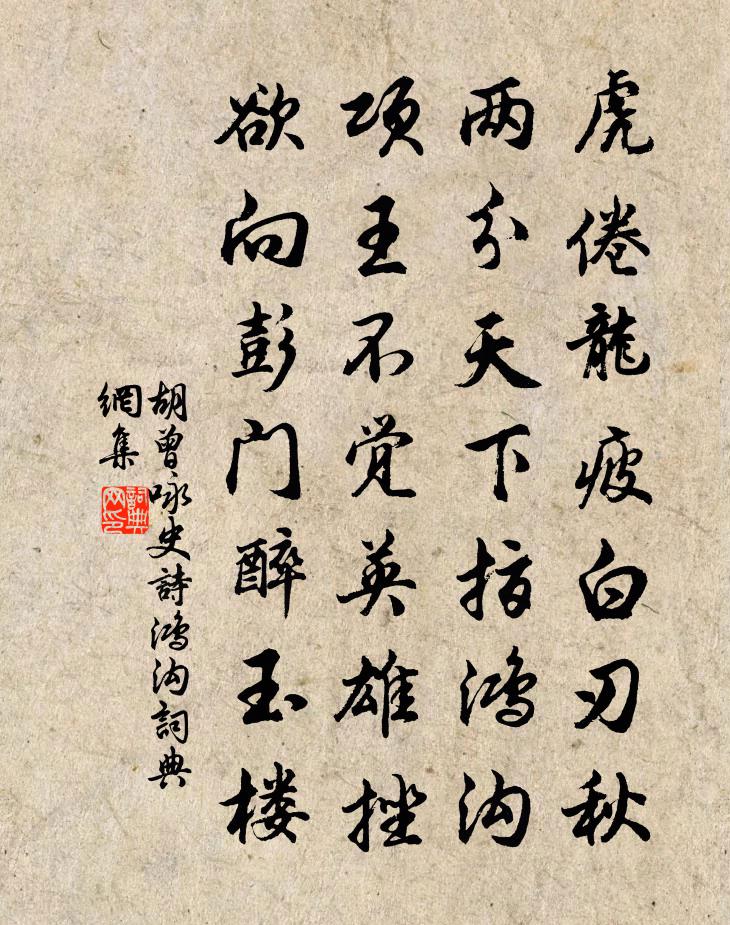 虎倦龍疲白刃秋
两分天下指鸿沟
项王不觉英雄挫
欲向彭门醉玉楼
胡曾咏史詩鸿沟詞典
網集
詞典
网印